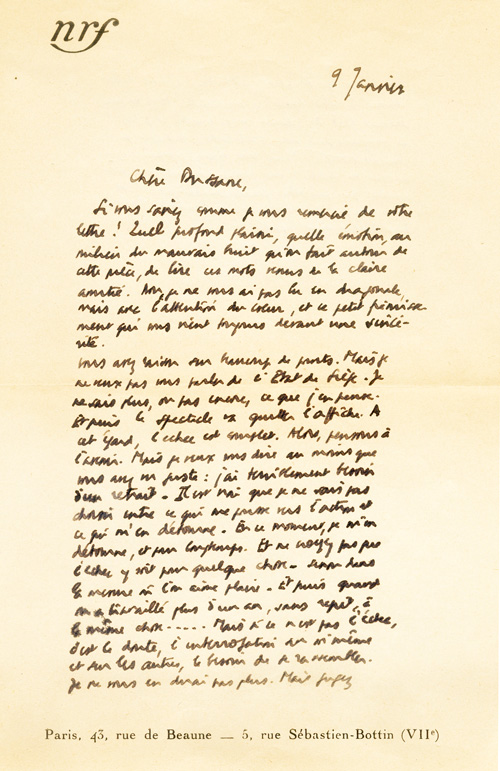 nrf
9 Janvier
Chère Dussane,
Si vous saviez comme je vous remercie de votre
lettre ! Quel profond plaisir, quelle émotion, au
milieu du mauvais bruit qu'on fait autour de
cette pièce, de lire ces mots venus de la claire
amitié. Non, je ne vous ai pas lu en diagonale,
mais avec l'attention du cœur, et ce petit frémisse-
ment qui vous vient toujours devant une sincé-
rité.
Vous avez raison sur beaucoup de points. Mais je
ne veux pas vous parler de l'Etat de Siège. Je
ne sais plus, ou pas encore, ce que j'en pense.
Et puis le spectacle va quitter l'affiche. A
cet égard, l'échec est complet. Alors, pensons à
l'avenir. Mais je veux vous dire au moins que
vous avez vu juste : j'ai terriblement besoin
d'un retrait. Il est vrai que je ne sais pas
choisir entre ce qui me pousse vers l'action et
ce qui m'en détourne. En ce moment, je m'en
détourne, et pour longtemps. Et ne croyez pas que
l'échec y soit pour quelque chose. Sinon dans
la mesure où l'on aime plaire. Et puis quand
on a travaillé plus d'un an, sans répit, à
la même chose..... Mais si ce n'est pas l'échec,
c'est le doute, l'interrogation sur moi même
et sur les autres, le besoin de se rassembler.
Je ne vous en dirai pas plus. Mais jugez
Paris, 43, rue de Beaune — 5, rue Sébastien-Bottin (VIIe)